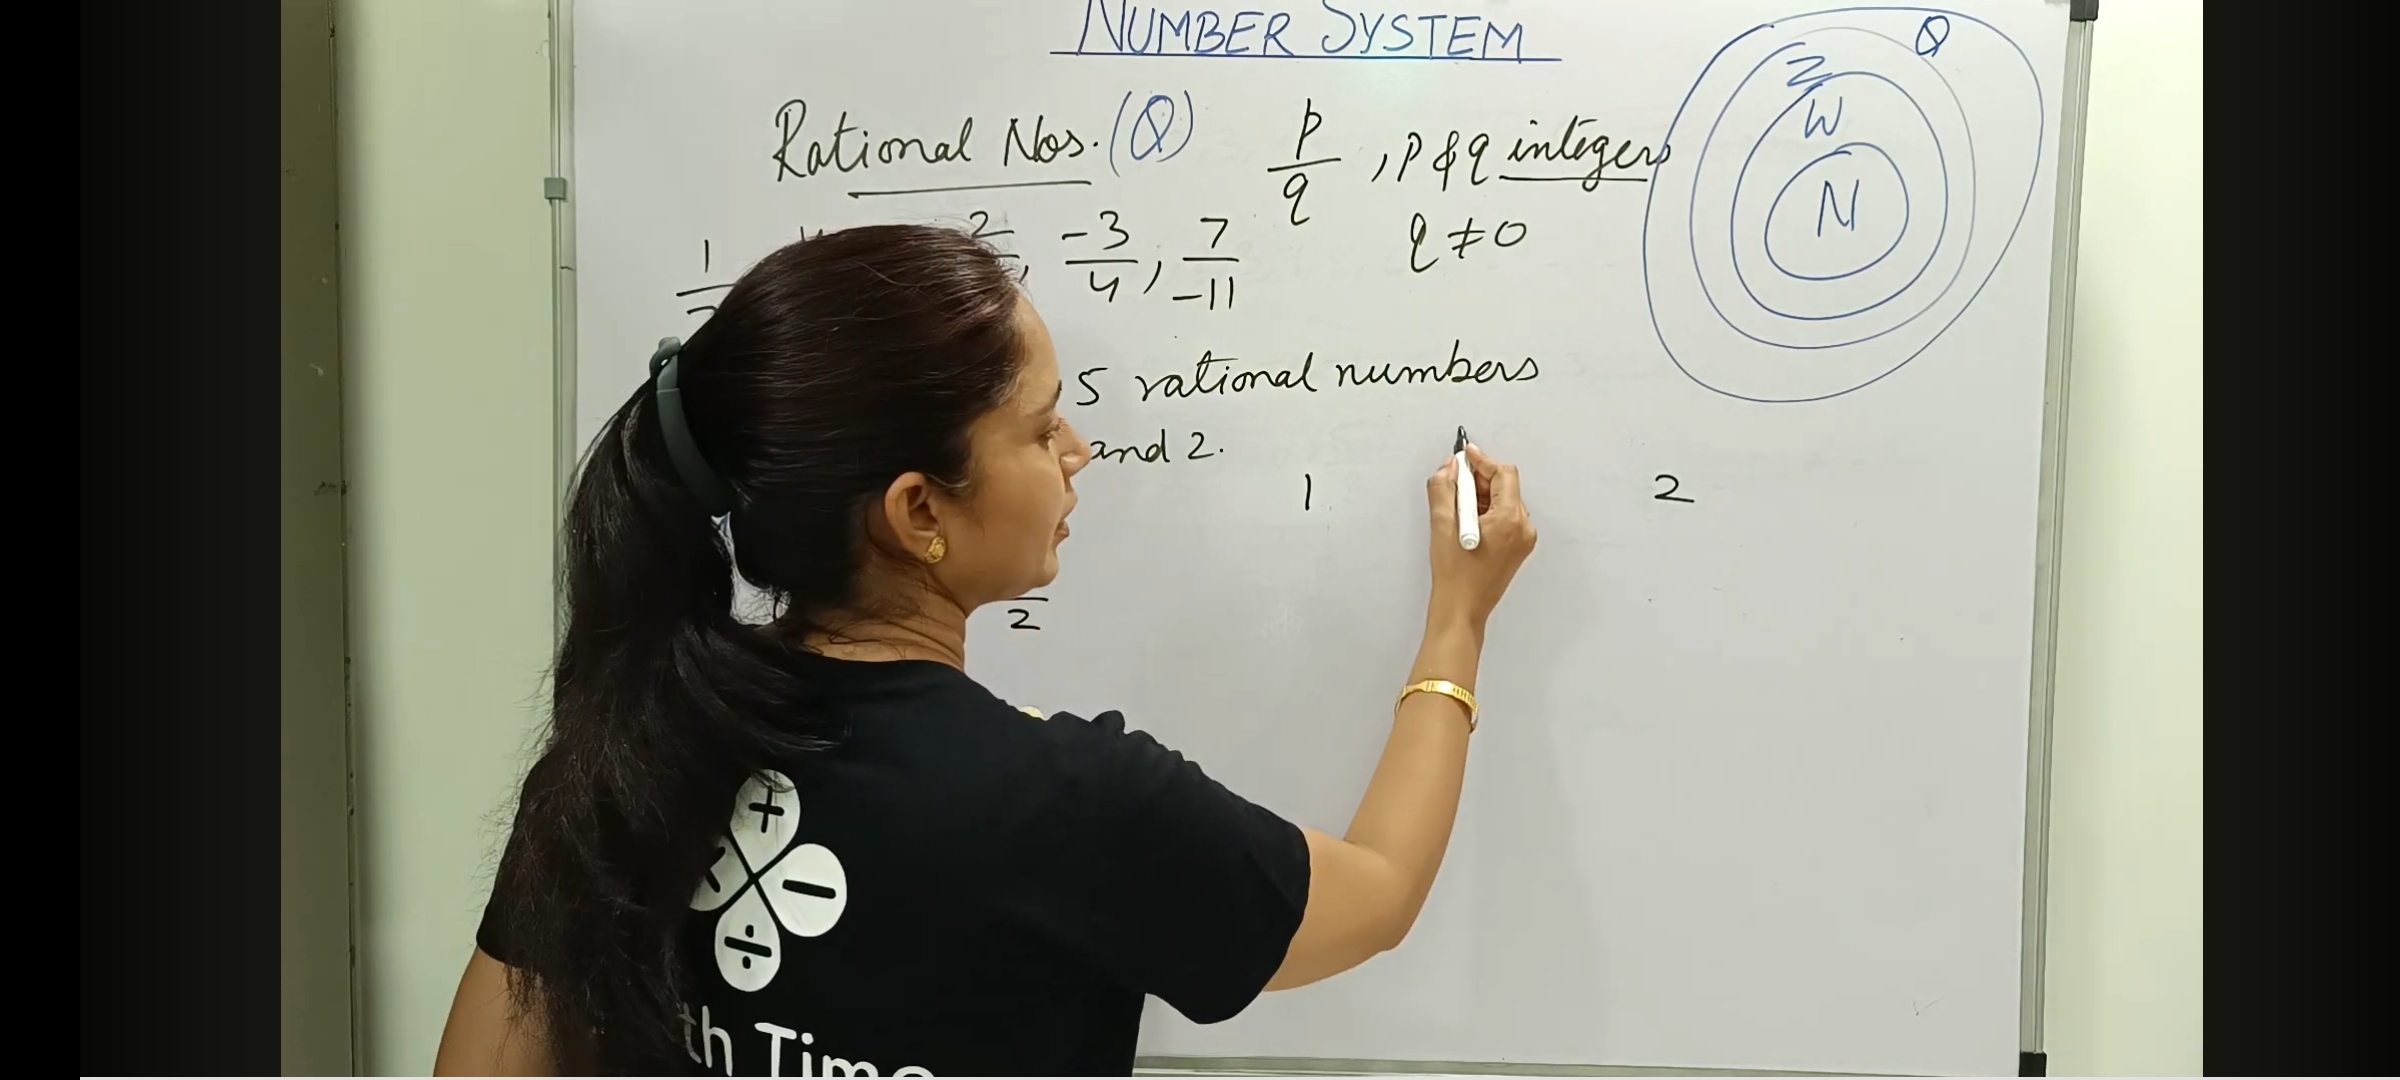 NUMBER SYSTEM
Rational Nos. (Q) p/q , p & q integers
q ≠ 0
1 2 , -3/4 , 7/-11
5 rational numbers
and 2.
1 2
2
Q
Z
W
N
+
−
÷
th Time